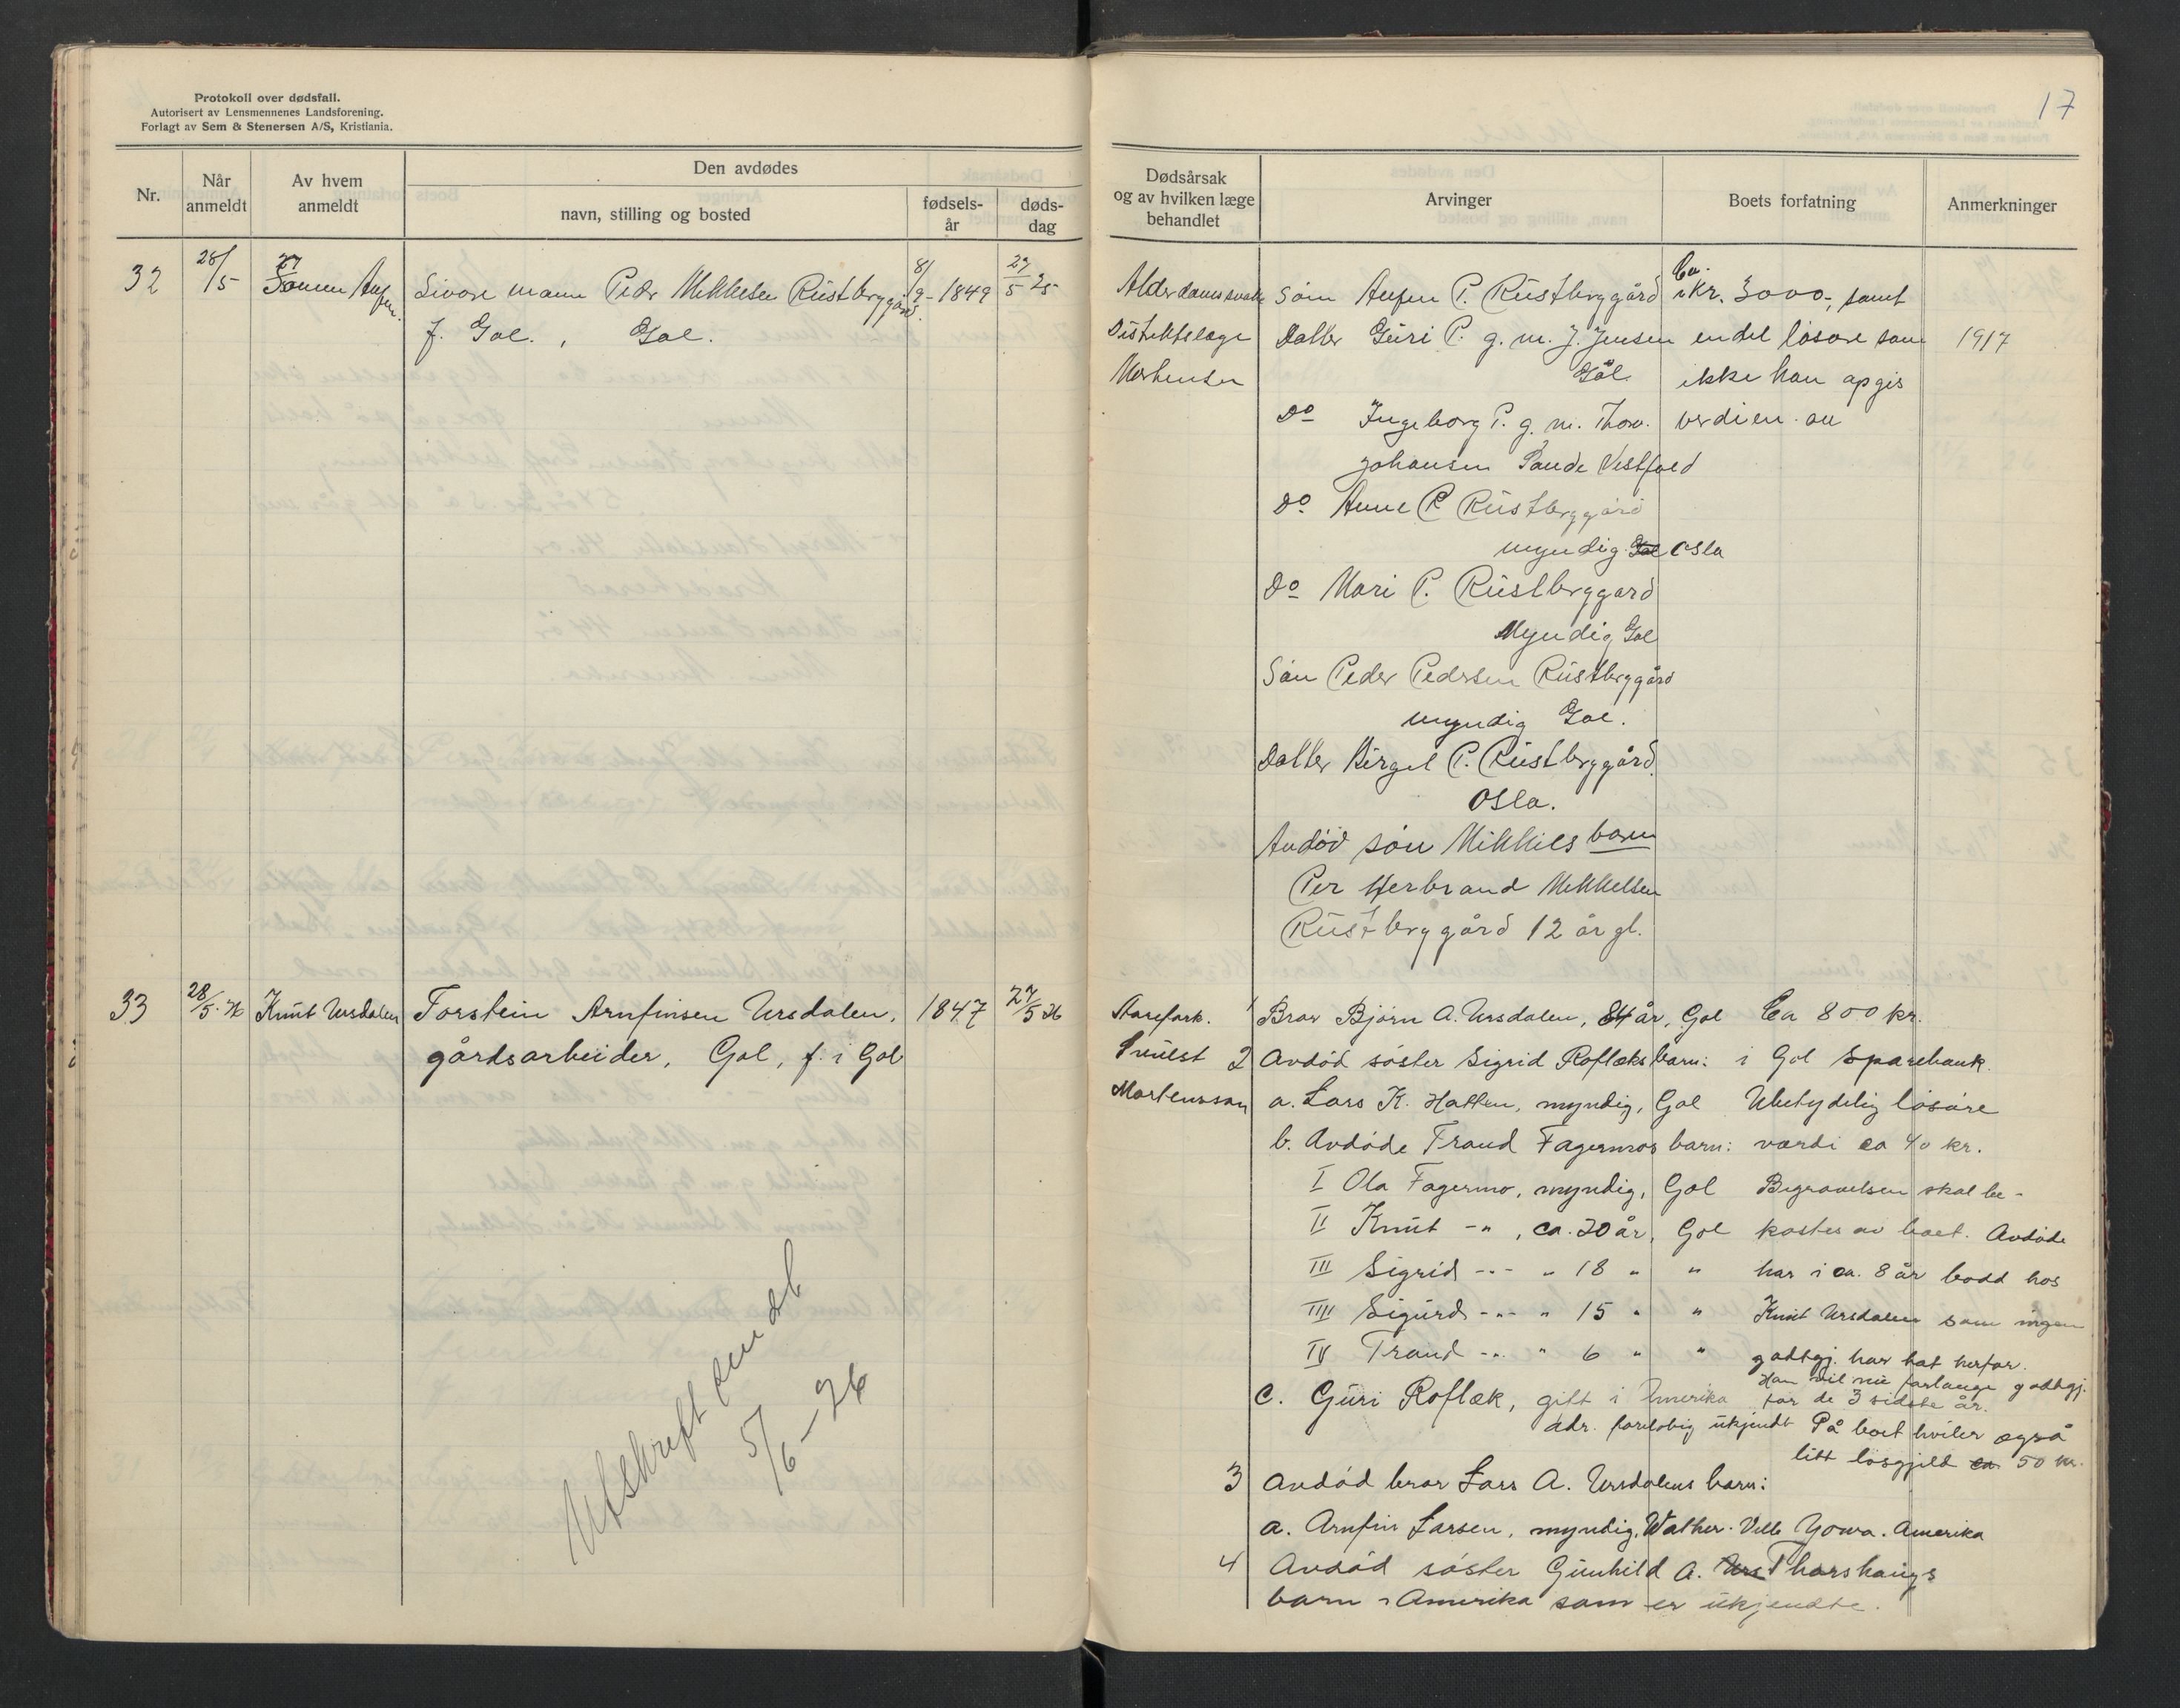 Protokoll over dødsfall.
Autorisert av Lensmennenes Landsforening.
Forlagt av Sem & Stenersen A/S, Kristiania.
17
Nr.
Når anmeldt
Av hvem anmeldt
Den avdødes
navn, stilling og bosted
fødsels-
år
døds-
dag
Dødsårsak
og av hvilken læge
behandlet
Arvinger
Boets forfatning
Anmerkninger
32
28/5
27
Sönnen
Livøre mann Peder Mikkelsen Rüstbryggård
f. Gol., Gol.
8/9-1849
27/5 25
Alderdomssvakh
Distriktslæge
Mortensen
Sön P. Rüstbryggård
Datter Güri P. g. m. J. Jensen
Gol
Do Ingeborg P. g. m. Thorv.
Johansen Sande Vestfold
Do Anne P Rüstbryggård
myndig Gol Oslo
Do Mari P. Rüstbryggard
Myndig Gol
Sön Peder Pedersen Rüstbryggård
myndig Gol.
Datter Birgit P. Rüstbryggård
Oslo.
Avdöd sön Mikkels barn
Per Herbrand Mikkelsen
Rüstbryggård 12 år gl.
Ca.
i Kr. 3000,- samt
endel lösöre som
ikke kan opgis
verdien av
1917
33
28/5-26
Knüt Ursdalen
Torstein Arnfinsen Ursdalen,
gårdsarbeider, Gol, f. i Gol
1847
27/5 26
Avskrift sendt
5/6-26
Mortensson
1 Bror Björn A. Ursdalen, 84 år, Gol
2 Avdöd söster Sigrid Roflæks barn:
a. Lars K. Hatten, myndig, Gol
b. Avdöde Trond Fagermos barn:
I Ola Fagermo, myndig, Gol
II Knüt -"- , ca. 20 år, Gol
III Sigrid -"- " 18 " "
IIII Sigürd -"- " 15 " "
IV Trond -"- " 6 " "
c. Güri Roflæk, gift i Amerika
adr. foreløbig ükjendt
3 Avdöd bror Lars A. Ursdalens barn:
a. Arnfin Larsen, myndig, Wather. Velle Yowa. Amerika
4 Avdöd söster Günhild A. Urs Thorshaugs
barn i Amerika som er ükjendte.
Ca 800 kr.
i Gol Sparebank.
Ubetydelig lösöre
værdi ca 40 kr.
Begravelsen skal be-
kostes av boet. Avdöde
har i ca. 8 år bodd hos
Knüt Ursdalen som ingen
godtgj. har hat herfor.
Han vil nü forlange godtgj.
for de 3 sidste år.
På boet hviler også
litt lösgjeld ca 50 kr.